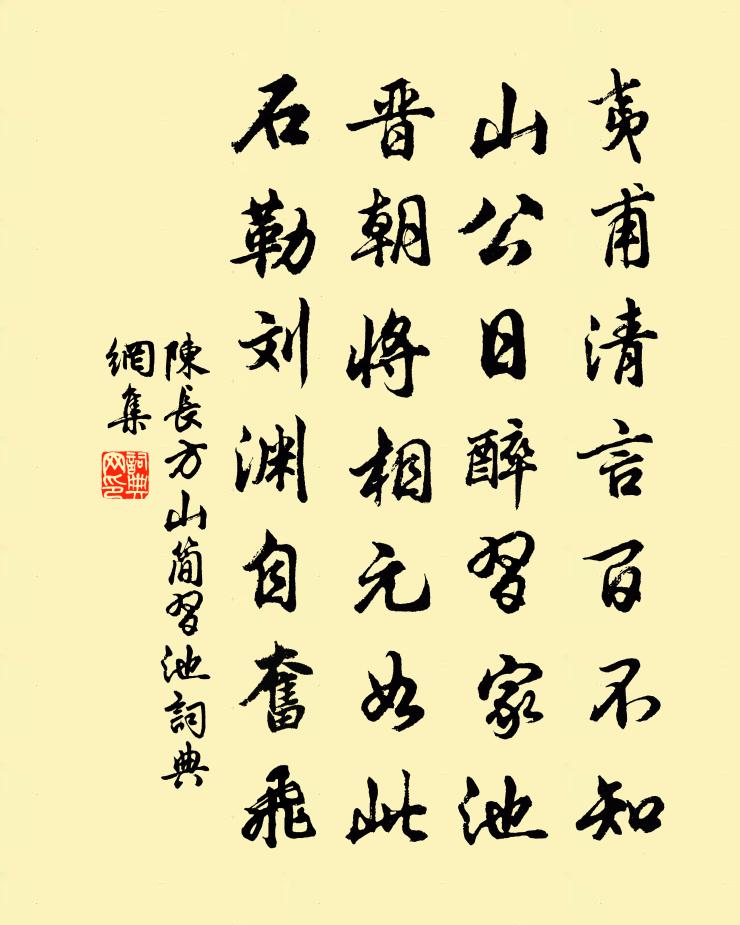 夷甫清言百不知
山公日醉習家池
晋朝將相元如此
石勒刘渊自奮飛
陳長方山简習池詞典
網集
詞典
网印